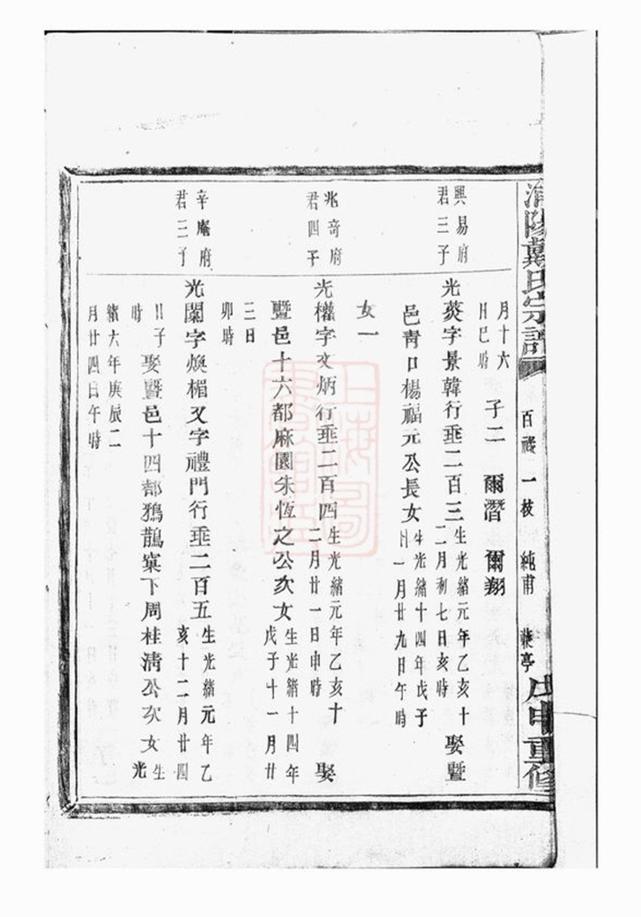 浦陽戴氏宗譜
百祿一枝
純甫
東亭
戊申重修
月十六
日巳時
子二　爾潛　爾翔
興易府
君三子
光葵字景韓行垂二百三
生光緒元年乙亥十
二月初七日亥時
娶暨
邑青口楊福元公長女
生光緒十四年戊子
十一月廿九日午時
女一
兆奇府
君四子
光權字文炳行垂二百四
生光緒元年乙亥十
二月廿一日申時
娶
暨邑十六都麻園朱恆之公次女
生光緒十四年
戊子十一月廿
三日
卯時
辛庵府
君二子
光閣字煥楣又字禮門行垂二百五
生光緒元年乙
亥十二月廿四
日子
時
娶暨邑十四都鴉鵲窠下周桂清公次女
生
光
緒六年庚辰二
月廿四日午時